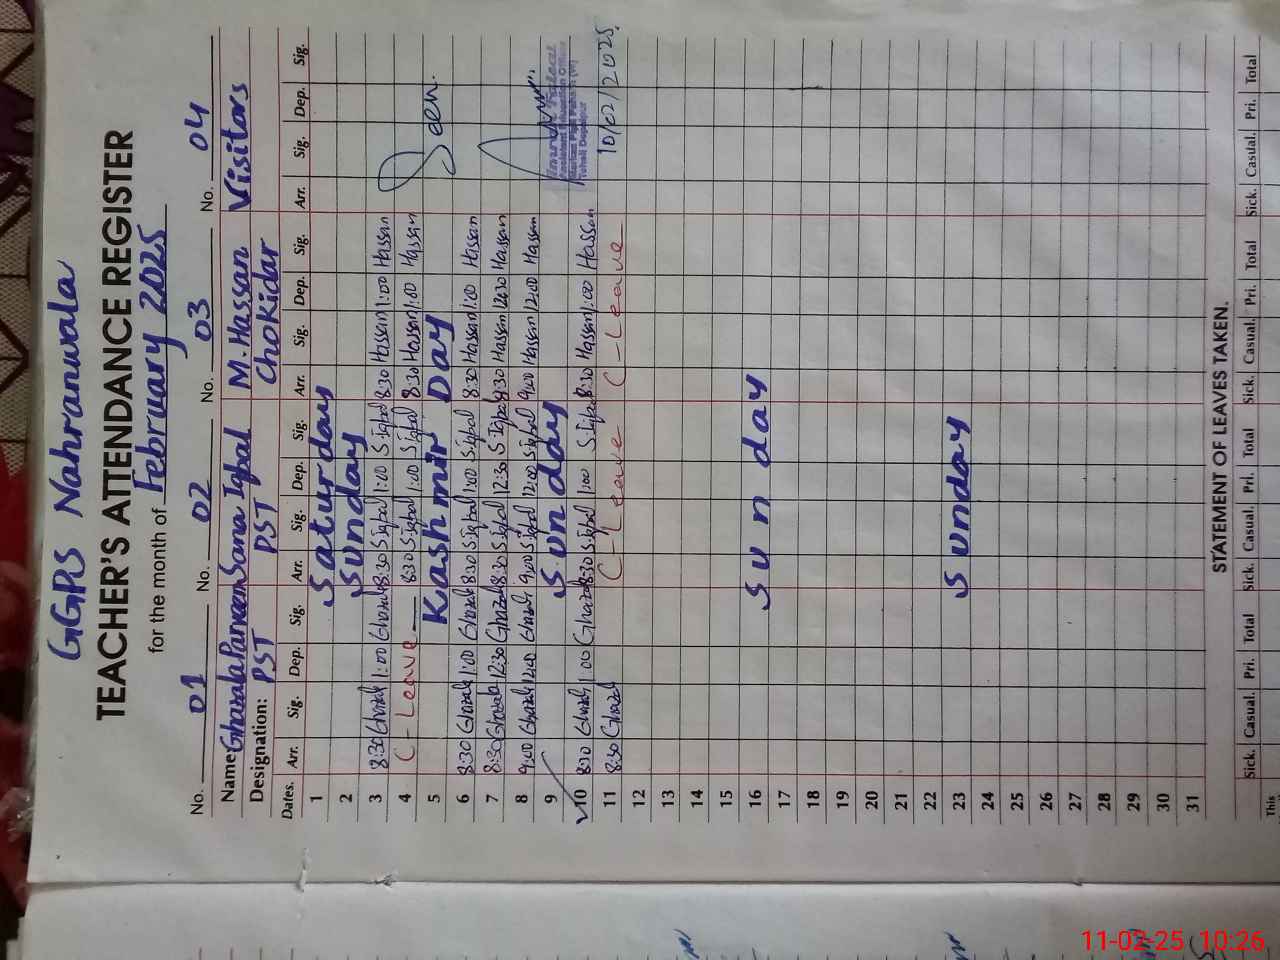 GGPS Nahranwala
TEACHER'S ATTENDANCE REGISTER
for the month of February 2025
No. 01 No. 02 No. 03 No. 04
Name: Ghazala Parveen Sana Iqbal M. Hassan Visitors
Designation: PST PST Chokidar
Dates. Arr. Sig. Dep. Sig. Arr. Sig. Dep. Sig. Arr. Sig. Dep. Sig. Arr. Sig. Dep. Sig.
1 Saturday
2 Sunday
3 8:30 Ghazala 1:00 Ghazala 8:30 S.iqbal 1:00 S.iqbal 8:30 Hassan 1:00 Hassan
4 C - Leave 8:30 S.iqbal 1:00 S.iqbal 8:30 Hassan 1:00 Hassan
5 Kashmir Day Seen.
6 8:30 Ghazala 1:00 Ghazala 8:30 S.iqbal 1:00 S.iqbal 8:30 Hassan 1:00 Hassan
7 8:30 Ghazala 12:30 Ghazala 8:30 S.iqbal 12:30 S.iqbal 8:30 Hassan 12:30 Hassan
8 9:00 Ghazala 12:00 Ghazala 9:00 S.iqbal 12:00 S.iqbal 9:00 Hassan 12:00 Hassan
9 Sunday
Assistant Education Officer
Tehsil Depalpur
10 8:30 Ghazala 1:00 Ghazala 8:30 S.iqbal 1:00 S.iqbal 8:30 Hassan 1:00 Hassan
10/02/2025.
11 8:30 Ghazal C - Leave C - Leave
12
13
14
15
16 Sunday
17
18
19
20
21
22
23 Sunday
24
25
26
27
28
29
30
31
STATEMENT OF LEAVES TAKEN.
Sick. Casual. Pri. Total Sick. Casual. Pri. Total Sick. Casual. Pri. Total Sick. Casual. Pri. Total
This
11-02-25 10:26